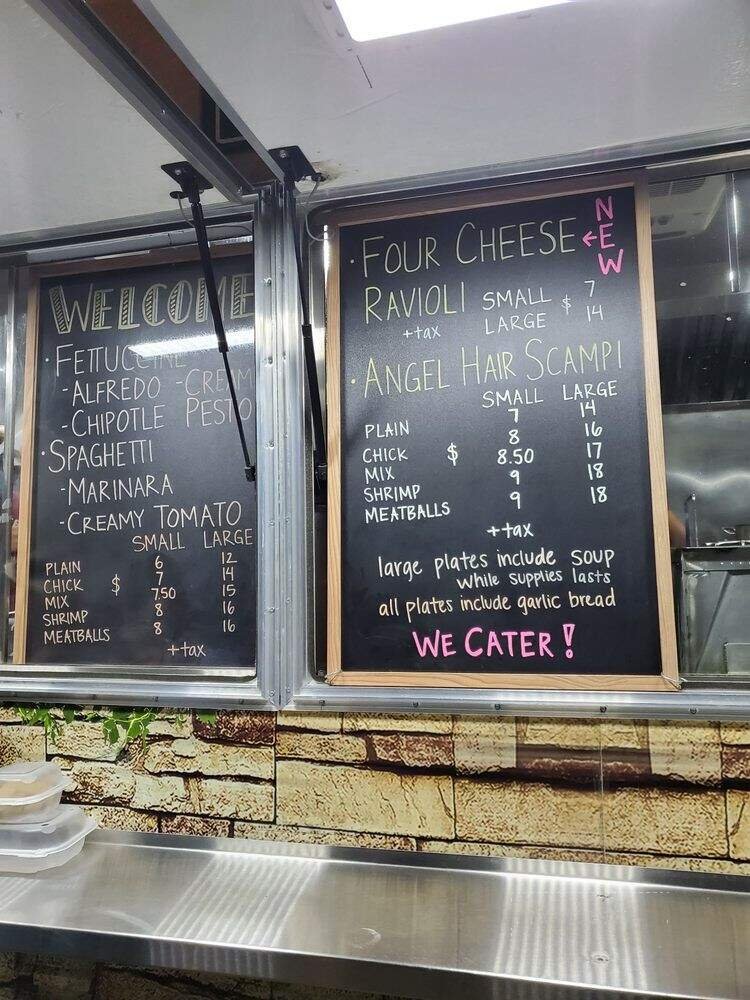 WELCOME
· FETTUCCINE
- ALFREDO - CREAM
- CHIPOTLE PESTO
· SPAGHETTI
- MARINARA
- CREAMY TOMATO
SMALL LARGE
PLAIN 6 12
CHICK $ 7 14
MIX 7.50 15
SHRIMP 8 16
MEATBALLS 8 16
++tax
· FOUR CHEESE ← NEW
RAVIOLI SMALL $ 7
++tax LARGE 14
· ANGEL HAIR SCAMPI
SMALL LARGE
PLAIN 7 14
CHICK $ 8 16
MIX 8.50 17
SHRIMP 9 18
MEATBALLS 9 18
++tax
large plates include SOUP
while supplies lasts
all plates include garlic bread
WE CATER!